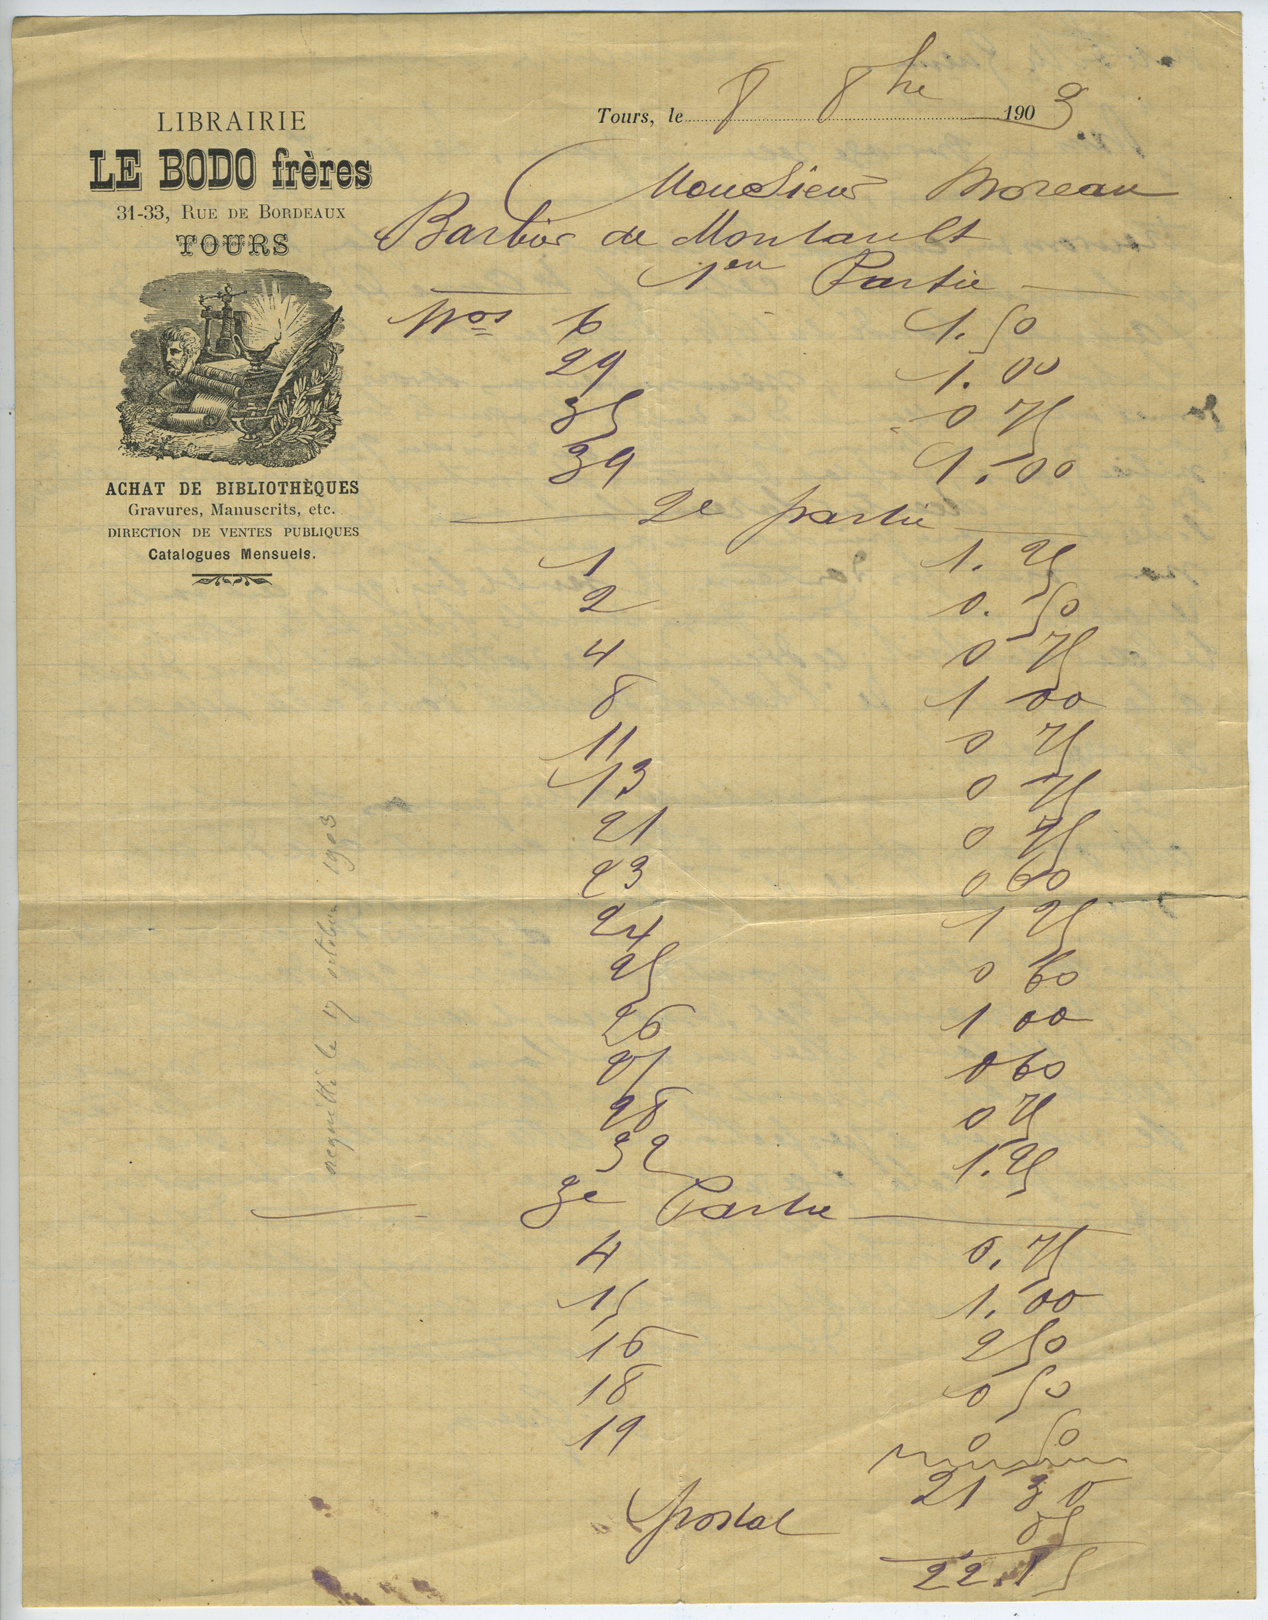 LIBRAIRIE
LE BODO frères
31-33, RUE DE BORDEAUX
TOURS
ACHAT DE BIBLIOTHÈQUES
Gravures, Manuscrits, etc.
DIRECTION DE VENTES PUBLIQUES
Catalogues Mensuels.
Tours, le 8 8bre 1903
Monsieur Moreau
Barbier de Montault
1ère Partie
Nos 6 1.50
29 1.00
35 0 75
39 1.00
2e partie
1 1.25
2 0.50
4 0 75
8 1 00
11 0 75
13 0 75
21 0 75
23 0 60
24 1 25
25 0 60
26 1 00
27 0 60
28 0 75
32 1.25
3e Partie
4 0.75
15 1.00
16 2 50
18 0 50
19 0 50
21 30
postal 85
22.15
acquitté le 17 octobre 1903